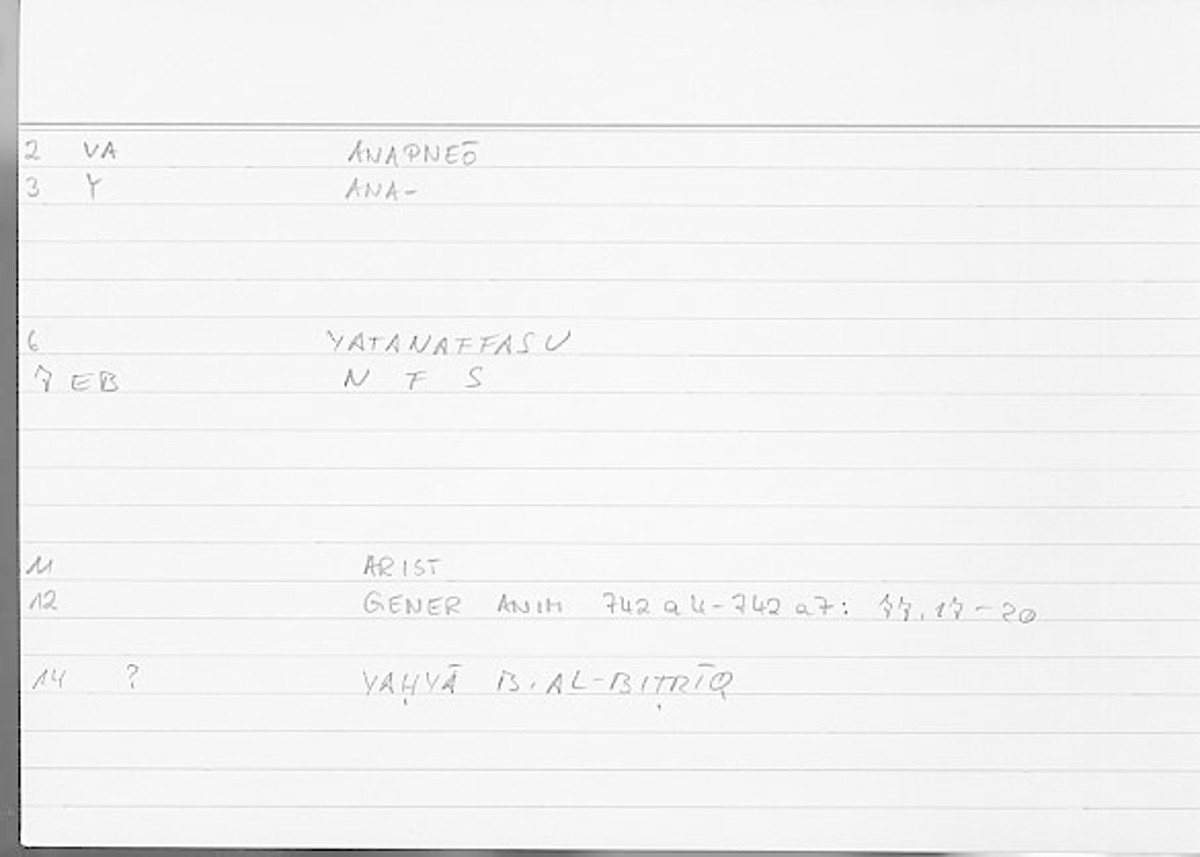 2 VA ANAPNEŌ
3 Y ANA-
6 YATANAFFASU
7 EB N F S
11 ARIST
12 GENER ANIM 742 a 4-742 a7: 77.17-20
14 ? YAḤYĀ B. AL-BIṬRĪQ